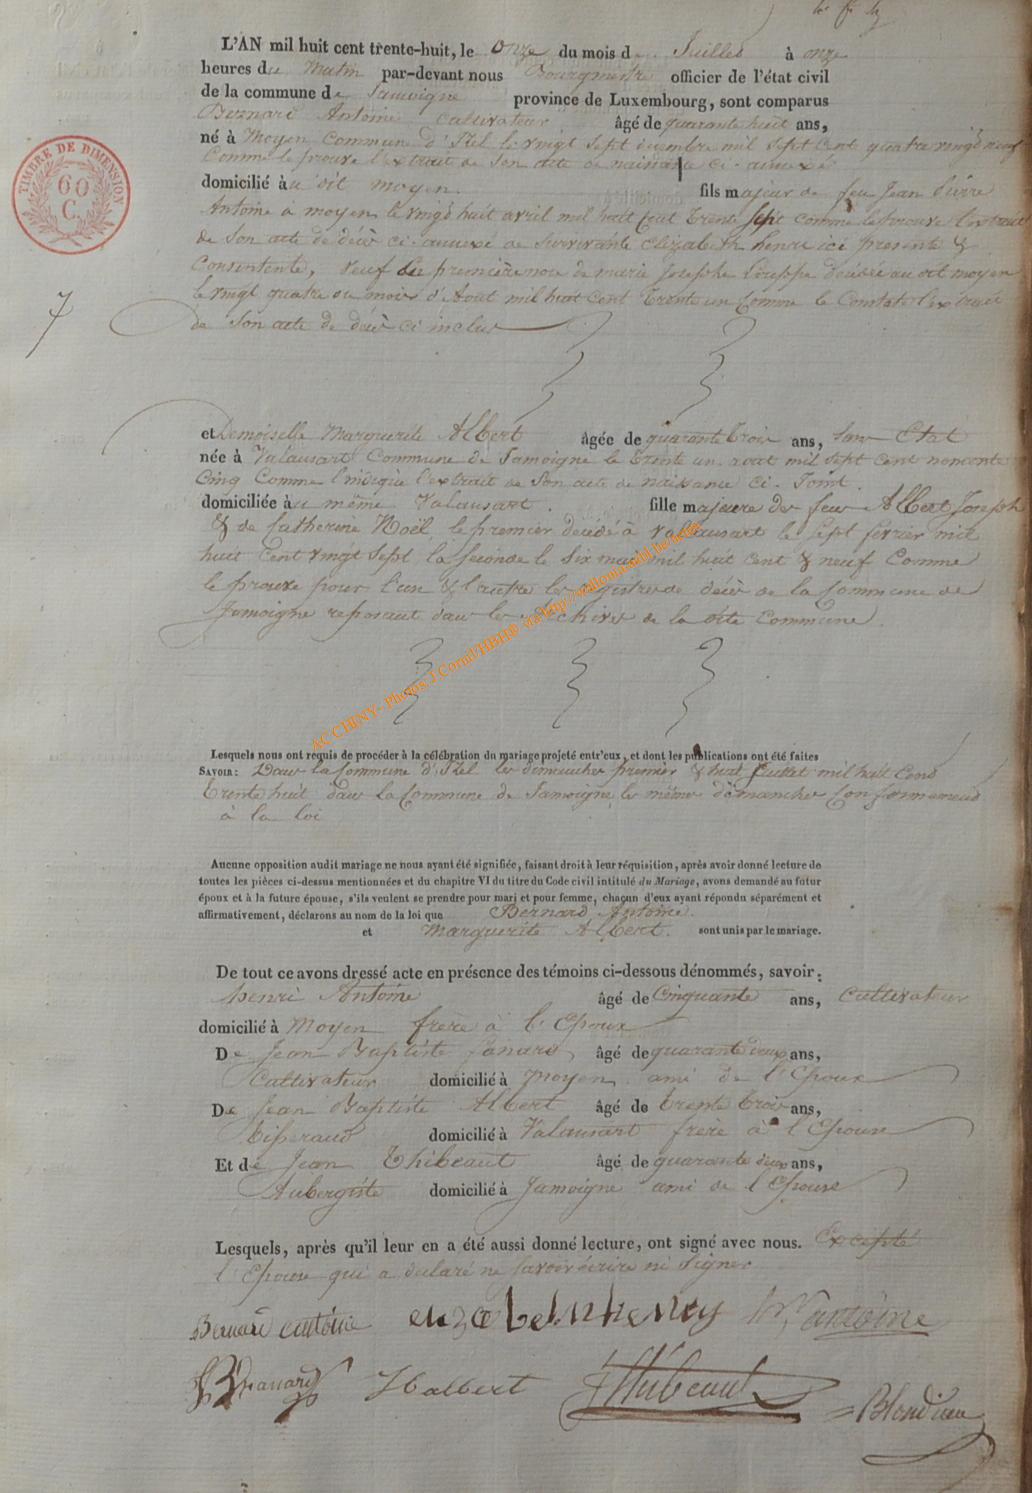 L'AN mil huit cent trente-huit, le onze du mois de Juillet à onze
heures du Matin par-devant nous Bourgmestre officier de l'état civil
de la commune de Jamoigne province de Luxembourg, sont comparus
Bernard Antoine Cultivateur âgé de quarante huit ans,
né à Moyen Commune d'Izel le vingt sept decembre mil sept Cent quatre vingt neuf
Comme le prouve l'extrait de Son acte de naissance ci annexé
domicilié au dit moyen. fils majeur de feu Jean Pierre
Antoine à moyen le vingt huit avril mil huit Cent Trente Sept comme le prouve l'extrait
de Son acte de décès ci-annexé de Survivante Elizabeth henri ici presente &
Consentente, veuf de première noce de marie Josephe décédée au dit moyen
le vingt quatre du mois d'Aout mil huit Cent Trente un Comme le Constate l'extrait
de Son acte de décès ci inclus
7
et Demoiselle Marguerite Albert âgée de quarante trois ans, sans Etat
née à Valansart Commune de Jamoigne le Trente un aout mil sept cent nonante
Cinq Comme l'indique l'extrait de Son acte de naissance ci-Joint.
domiciliée au même Valansart. fille majeure de feu Albert Joseph
& de Catherine Noël, le premier décédé à Valansart le Sept fevrier mil
huit Cent vingt Sept la seconde le Six mai mil huit Cent & neuf Comme
le prouve pour l'un & l'autre les registres de décès de la Commune de
Jamoigne reposant dans les archives de la dite Commune.
Lesquels nous ont requis de procéder à la célébration du mariage projeté entr'eux, et dont les publications ont été faites
SAVOIR: Dans la Commune d'Izel les dimanches premier & huit Juillet mil huit Cent
Trente huit dans la Commune de Jamoigne les mêmes dimanches Conformement
à la loi
Aucune opposition audit mariage ne nous ayant été signifiée, faisant droit à leur réquisition, après avoir donné lecture de
toutes les pièces ci-dessus mentionnées et du chapitre VI du titre du Code civil intitulé du Mariage, avons demandé au futur
époux et à la future épouse, s'ils veulent se prendre pour mari et pour femme, chacun d'eux ayant répondu séparément et
affirmativement, déclarons au nom de la loi que Bernard Antoine
et Marguerite Albert. sont unis par le mariage.
De tout ce avons dressé acte en présence des témoins ci-dessous dénommés, savoir:
henri Antoine âgé de Cinquante ans, Cultivateur
domicilié à Moyen frère à l'Epoux
De Jean Baptiste fanard, âgé de quarante deux ans,
Cultivateur domicilié à Moyen ami de l'Epoux
De Jean Baptiste Albert âgé de trente trois ans,
tisserand domicilié à Valansart frère à l'Epouse
Et de Jean Thibeaut âgé de quarante deux ans,
Aubergiste domicilié à Jamoigne ami de l'Epouse
Lesquels, après qu'il leur en a été aussi donné lecture, ont signé avec nous. Excepté
l'Epouse qui a déclaré ne savoir écrire ni signer
Bernard antoine elizabeth henry hri antoine
JB fanard JB albert JThibeaut Blondiau
TIMBRE DE DIMENSION
60
C.
AC CHINY- Photos J.Cornil/HBHB via http://wallonica